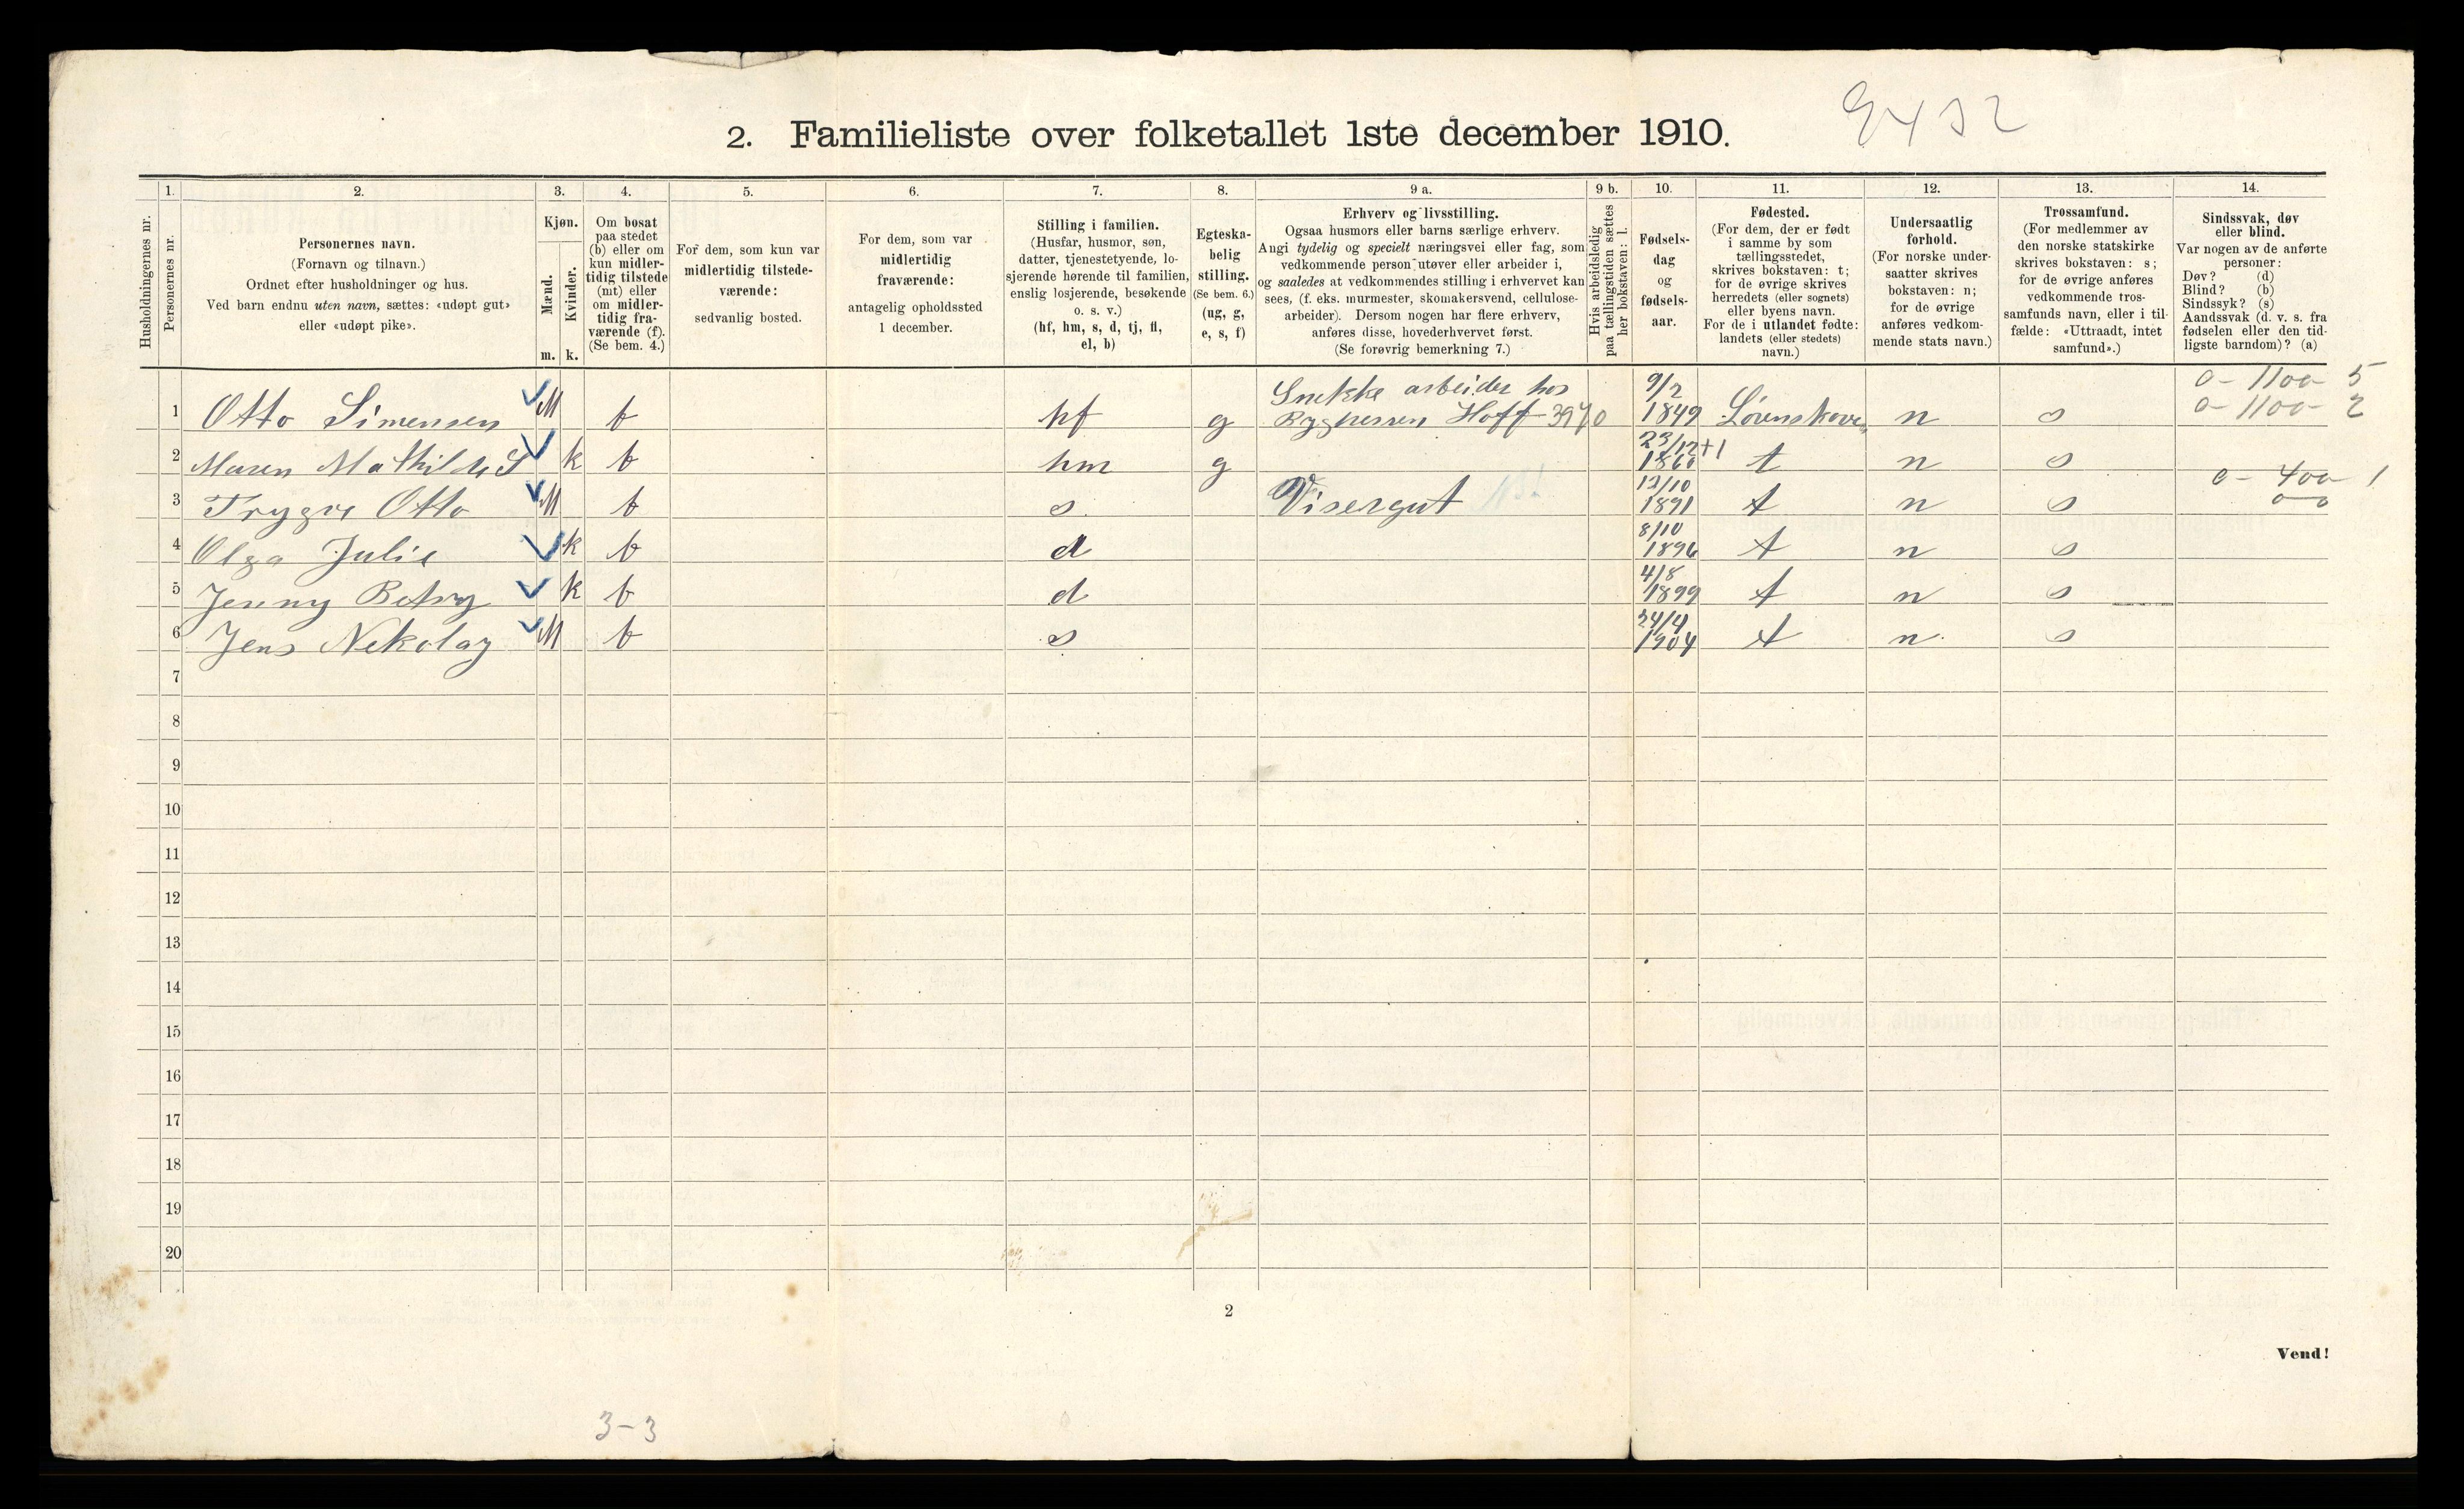 2. Familieliste over folketallet 1ste december 1910.
9432
Husholdningernes nr.
1.
Personernes nr.
2.
Personernes navn.
(Fornavn og tilnavn.)
Ordnet efter husholdninger og hus.
Ved barn endnu uten navn, sættes: «udøpt gut»
eller «udøpt pike».
3.
Kjøn.
Mænd.
Kvinder.
m. k.
4.
Om bosat
paa stedet
(b) eller om
kun midler-
tidig tilstede
(mt) eller
om midler-
tidig fra-
værende (f).
(Se bem. 4.)
5.
For dem, som kun var
midlertidig tilstede-
værende:
sedvanlig bosted.
6.
For dem, som var
midlertidig
fraværende:
antagelig opholdssted
1 december.
7.
Stilling i familien.
(Husfar, husmor, søn,
datter, tjenestetyende, lo-
sjerende hørende til familien,
enslig losjerende, besøkende
o. s. v.)
(hf, hm, s, d, tj, fl,
el, b)
8.
Egteska-
belig
stilling.
(Se bem. 6.)
(ug, g,
e, s, f)
9 a.
Erhverv og livsstilling.
Ogsaa husmors eller barns særlige erhverv.
Angi tydelig og specielt næringsvei eller fag, som
vedkommende person utøver eller arbeider i,
og saaledes at vedkommendes stilling i erhvervet kan
sees, (f. eks. murmester, skomakersvend, cellulose-
arbeider). Dersom nogen har flere erhverv,
anføres disse, hovederhvervet først.
(Se forøvrig bemerkning 7.)
9 b.
Hvis arbeidsledig
paa tællingstiden sættes
her bokstaven: l.
10.
Fødsels-
dag
og
fødsels-
aar.
11.
Fødested.
(For dem, der er født
i samme by som
tællingsstedet,
skrives bokstaven: t;
for de øvrige skrives
herredets (eller sognets)
eller byens navn.
For de i utlandet fødte:
landets (eller stedets)
navn.)
12.
Undersaatlig
forhold.
(For norske under-
saatter skrives
bokstaven: n;
for de øvrige
anføres vedkom-
mende stats navn.)
13.
Trossamfund.
(For medlemmer av
den norske statskirke
skrives bokstaven: s;
for de øvrige anføres
vedkommende tros-
samfunds navn, eller i til-
fælde: «Uttraadt, intet
samfund».)
14.
Sindssvak, døv
eller blind.
Var nogen av de anførte
personer:
Døv? (d)
Blind? (b)
Sindssyk? (s)
Aandssvak (d. v. s. fra
fødselen eller den tid-
ligste barndom)? (a)
Snekke arbeider hos 9/2 0 - 1100 - 5
1 Otto Simensen M b hf g Hoff 3970 1849 Lørenskoven n s 0 - 1100 - 2
23/12 +1
2 Maren Mathilde S k b hm g 1860 t n s
12/10 0 - 400 1
3 Trygve Otto M b s Visergut 1891 t n s 0-0
8/10
4 Olga Julie k b d 1896 t n s
4/8
5 Jenny Betsy k b d 1899 t n s
24/4
6 Jens Nekolay M b s 1904 t n s
7
8
9
10
11
12
13
14
15
16
17
18
19
20
2
Vend!
3-3